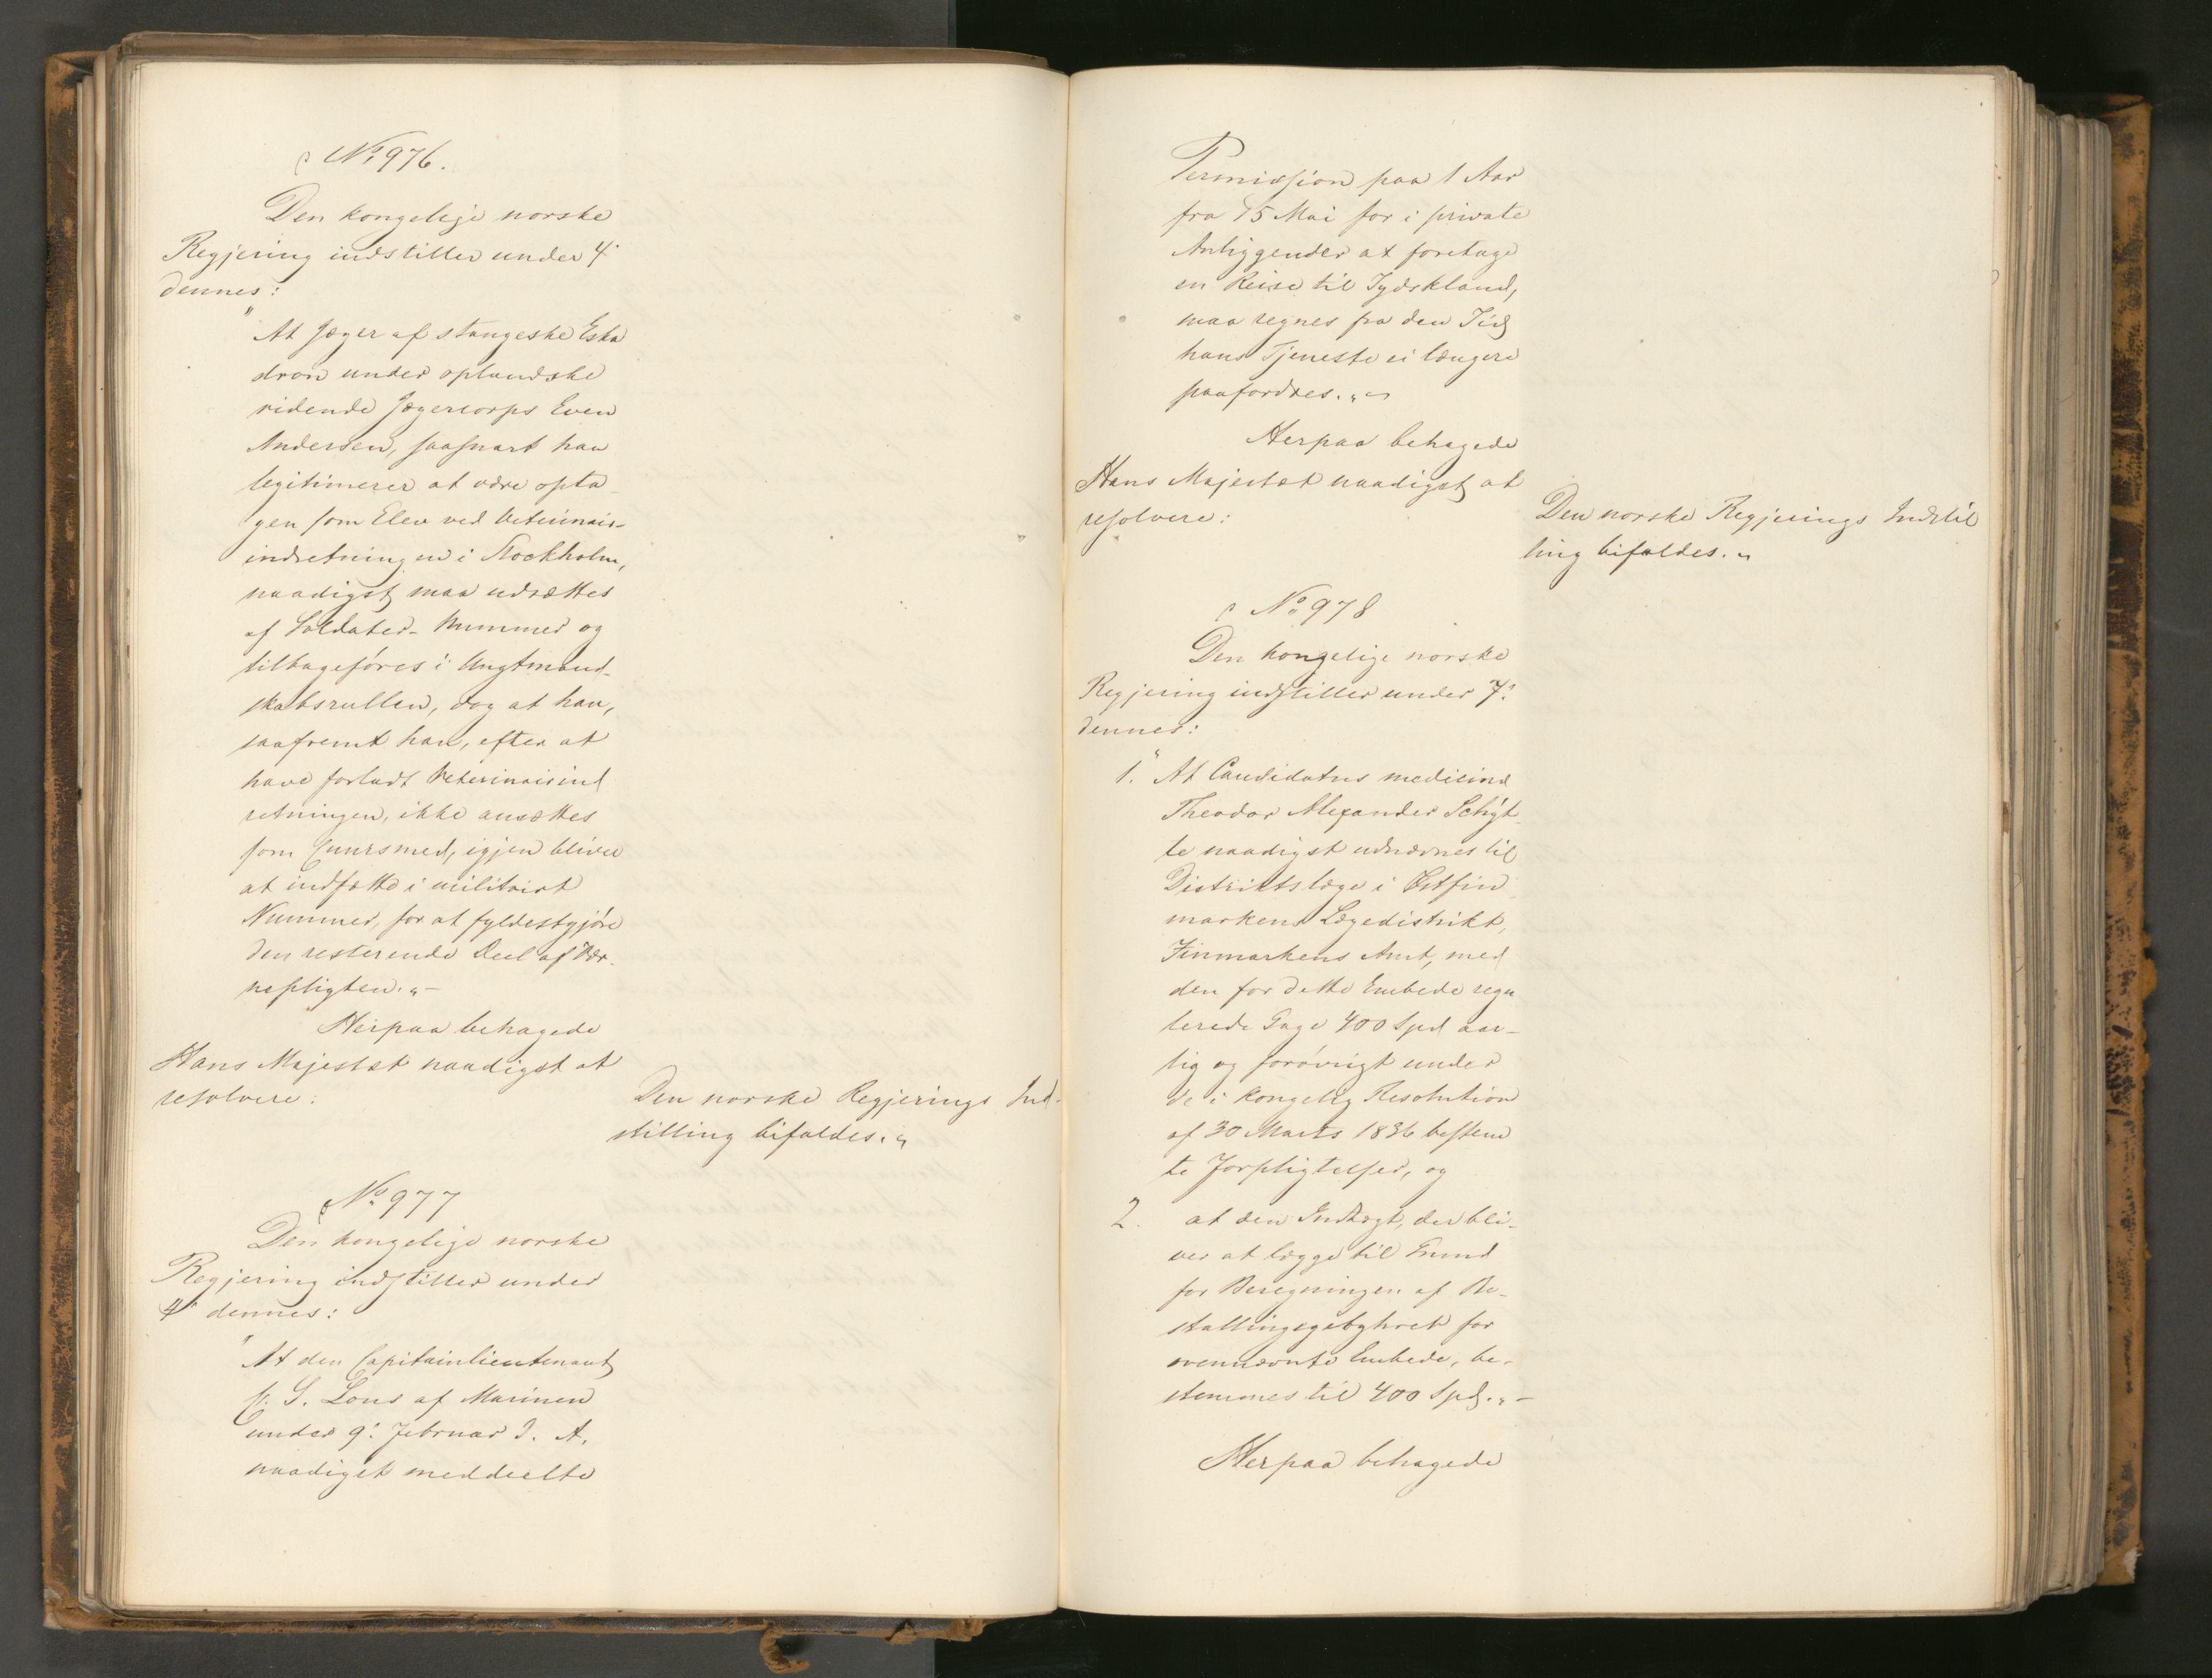 No. 976.
Den kongelige norske
Regjering indstiller under 4.
dennes:
"At Jæger af stangeske Eska
dron under oplandske
ridende Jægercorps Even
Andersen, saasnart han
legitimerer at være opta-
gen som Elev ved Veterinair-
indretningen i Stockholm,
naadigst maa udsættes
af Soldater-Nummer og
tilbageföres i Ungtmand-
skabsrullen, dog at han,
saafremt han, efter at
have forladt Veterinairind
retningen, ikke ansættes
som Cuursmed, igjen bliver
at indsætte i militairt
Nummer, for at fyldestgjöre
den resterende Deel af Vær-
nepligten."-
Herpaa behagede
Hans Majestæt naadigst at
resolvere:
Den norske Regjerings Ind-
stilling bifaldes."
No. 977
Den kongelige norske
Regjering indstiller under
4. dennes:
"At den Capitainlieutenant
C. S. Lous af Marinen
under 9. Februar d. A.
naadigst meddeelte
Permission paa 1 Aar
fra 15 Mai for i private
Anliggender at foretage
en Reise til Tydskland,
maa regnes fra den Tid
hans Tjeneste ei længere
paafordres."
Herpaa behagede
Hans Majestæt naadigst at
resolvere:
Den norske Regjerings Indstil
ling bifaldes."
No. 978
Den kongelige norske
Regjering indstiller under 7.
dennes:
1. "At Candidatus medicinæ
Theodor Alexander Schyt-
te naadigst udnævnes til
Distriktslæge i Östfin
markens Lægedistrikt,
Finmarkens Amt, med
den for dette Embede regu
lerede Gage 400 Spd aar-
lig og forövrigt under
de i kongelig Resolution
af 30 Marts 1836 bestem
te Forpligtelser, og
2. at den Indtægt, der bli-
ver at lægge til Grund
for Beregningen af Be-
stallingsgebyhret for
ovennævnte Embede, be-
stemmes til 400 Spd."-
Herpaa behagede